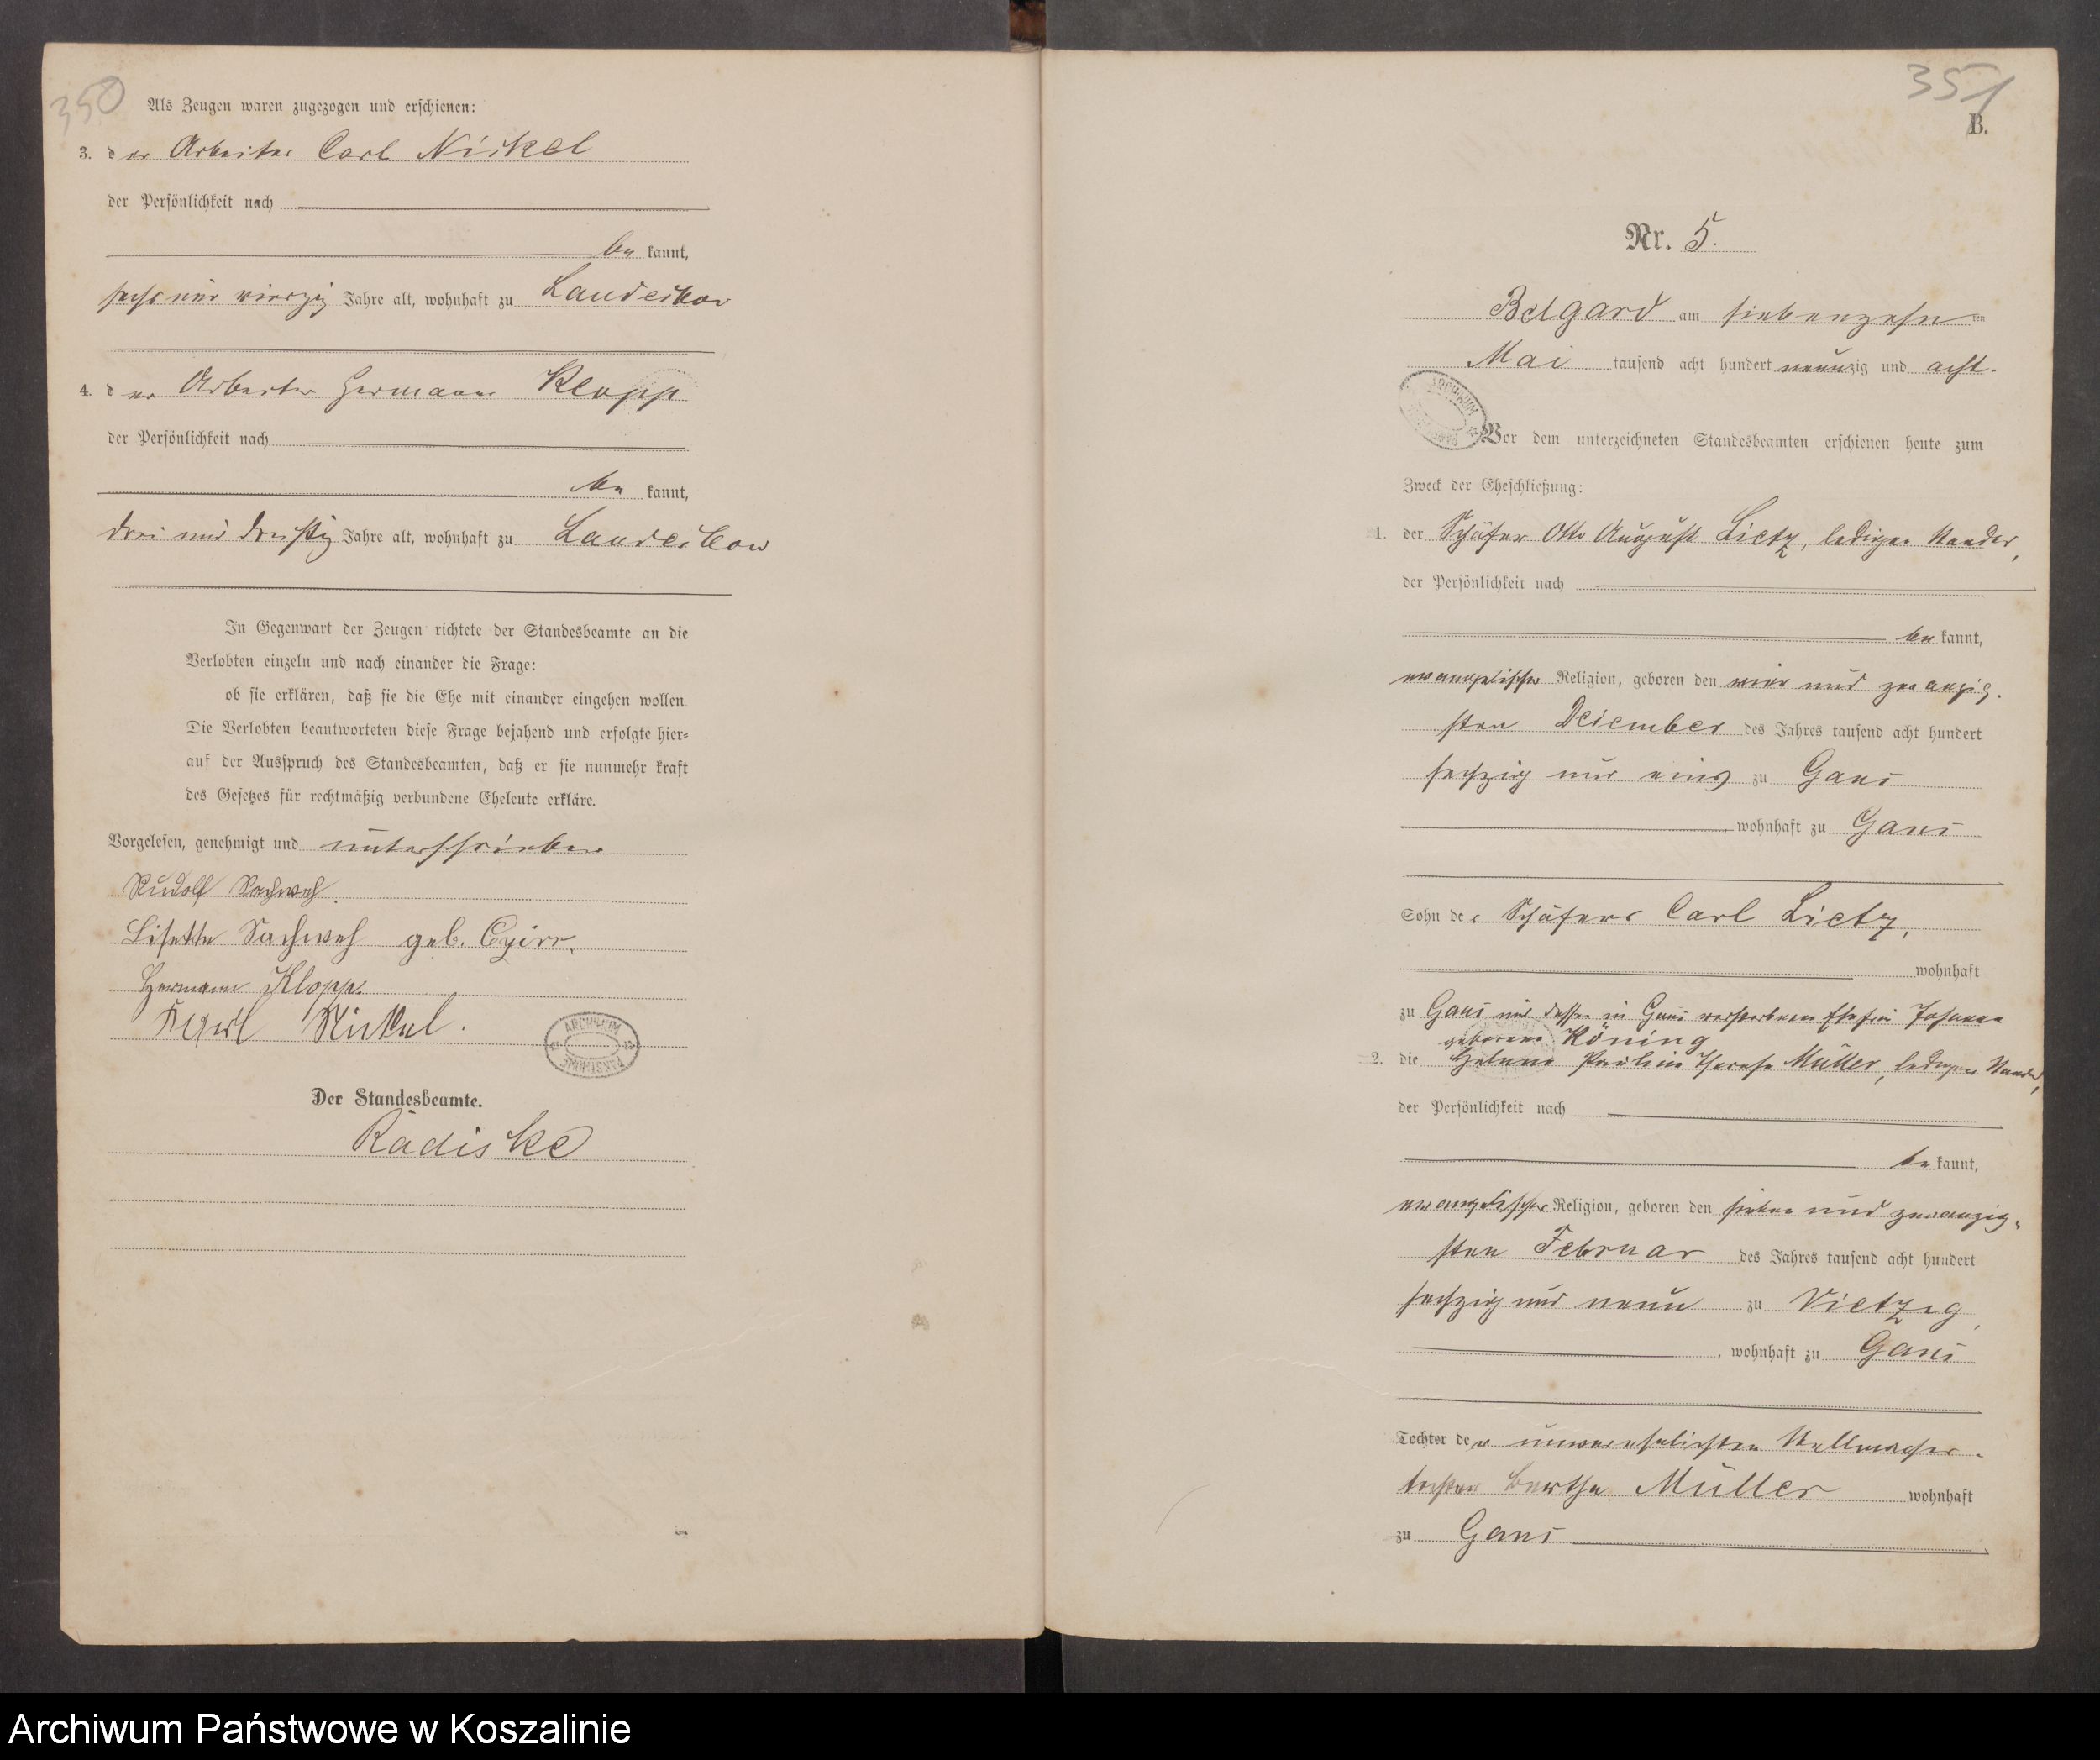 350
Als Zeugen waren zugezogen und erschienen:
3. der Arbeiter Carl Nickel
der Persönlichkeit nach
be kannt,
sechs und vierzig Jahre alt, wohnhaft zu Landeckow
4. der Arbeiter Hermann Klopp
der Persönlichkeit nach
be kannt,
drei und dreißig Jahre alt, wohnhaft zu Landeckow
In Gegenwart der Zeugen richtete der Standesbeamte an die
Verlobten einzeln und nach einander die Frage:
ob sie erklären, daß sie die Ehe mit einander eingehen wollen
Die Verlobten beantworteten diese Frage bejahend und erfolgte hier-
auf der Ausspruch des Standesbeamten, daß er sie nunmehr kraft
des Gesetzes für rechtmäßig verbundene Eheleute erkläre.
Vorgelesen, genehmigt und unterschrieben
Rudolf Sachweh.
Lisette Sachweh geb.
Hermann Klopp.
Karl Nickel.
ARCHIWUM PAŃSTWOWE
Der Standesbeamte.
Radiske
351
B.
Nr. 5.
Belgard am siebenzehn ten
Mai tausend acht hundert neunzig und acht.
ARCHIWUM
Vor dem unterzeichneten Standesbeamten erschienen heute zum
Zweck der Eheschließung:
1. der Schäfer Otto August Lietz, ledigen Standes,
der Persönlichkeit nach
be kannt,
evangelischer Religion, geboren den vier und zwanzig-
sten Dezember des Jahres tausend acht hundert
sechzig und eins zu Gans
, wohnhaft zu Gans
Sohn des Schäfers Carl Lietz,
wohnhaft
zu Gans und dessen in Gans verstorbenen Ehefrau Johanna
geborene Köning
2. die Helene Pauline Therese Müller, ledigen Standes,
der Persönlichkeit nach
be kannt,
evangelischer Religion, geboren den sieben und zwanzig-
sten Februar des Jahres tausend acht hundert
sechzig und neun zu Vietzig,
, wohnhaft zu Gans
Tochter der unverehelichten Stellmacher-
tochter Bertha Müller wohnhaft
zu Gans
Archiwum Państwowe w Koszalinie